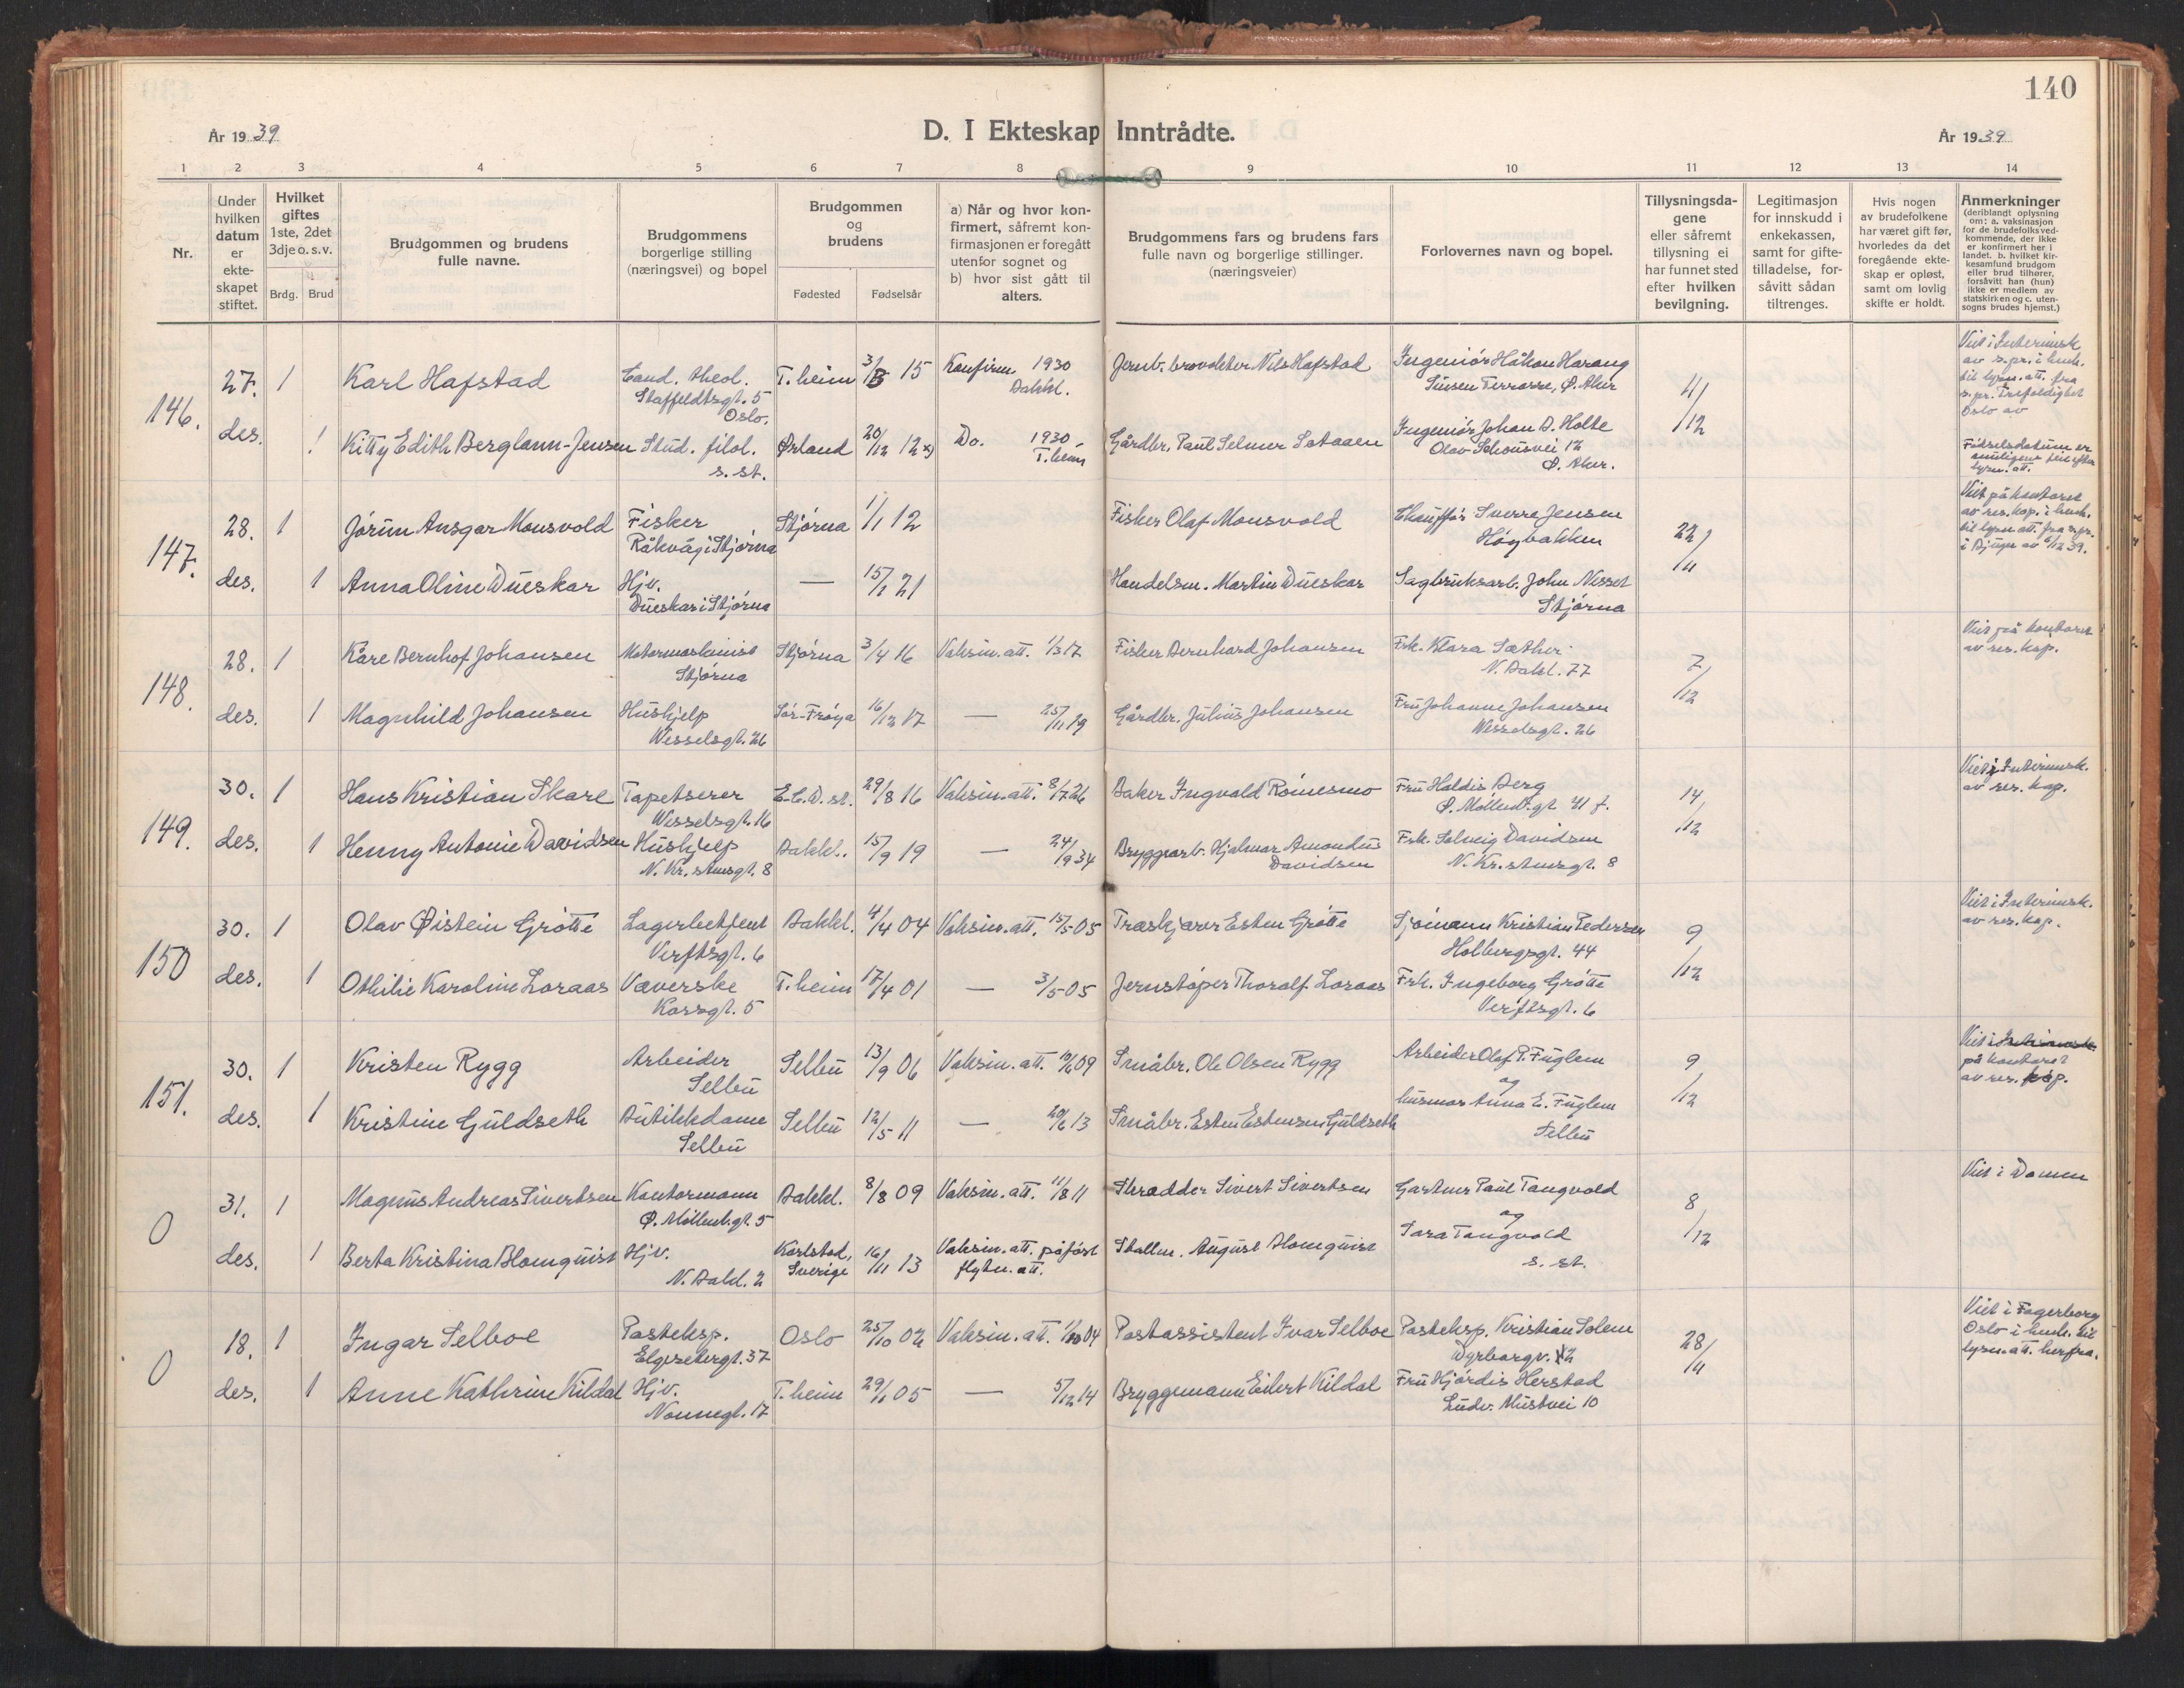 140
År 1939
D. I Ekteskap Inntrådte.
År 1939
1 2 3 4 5 6 7 8 9 10 11 12 13 14
Nr.
Under
hvilken
datum
er
ekte-
skapet
stiftet.
Hvilket
giftes
1ste, 2det
3dje o. s. v.
Brdg. Brud
Brudgommen og brudens
fulle navne.
Brudgommens
borgerlige stilling
(næringsvei) og bopel
Brudgommen
og
brudens
Fødested Fødselsår
a) Når og hvor kon-
firmert, såfremt kon-
firmasjonen er foregått
utenfor sognet og
b) hvor sist gått til
alters.
Brudgommens fars og brudens fars
fulle navn og borgerlige stillinger.
(næringsveier)
Forlovernes navn og bopel.
Tillysningsda-
gene
eller såfremt
tillysning ei
har funnet sted
efter hvilken
bevilgning.
Legitimasjon
for innskudd i
enkekassen,
samt for gifte-
tilladelse, for-
såvitt sådan
tiltrenges.
Hvis nogen
av brudefolkene
har været gift før,
hvorledes da det
foregående ekte-
skap er opløst,
samt om lovlig
skifte er holdt.
Anmerkninger
(deriblandt oplysning
om: a. vaksinasjon
for de brudefolks ved-
kommende, der ikke
er konfirmert her i
landet. b. hvilket kir-
kesamfund brudgom
eller brud tilhører,
forsåvitt han (hun)
ikke er medlem av
statskirken og c. uten-
sogns brudes hjemst.)
146.
27. 1 Karl Hafstad
Cand. theol.
Staffeldtsgt. 5
Oslo.
T.heim 15 Konfirm. 1930
Bakkl.
Nils Hafstad
Ingeniør Håkon Harang
Sinsen Terrasse, Ø. Aker
4/12
des. 1 Kitty Edith Berglann-Jensen Stud. filol.
s. st.
Ørland 20/12 12 x) Do. 1930
T.heim
Gårdbr. Paul Selmer Sataaen
Ingeniør Johan D. Holte
Olav Schousvei 12
Ø. Aker.
Viet i Interimsk.
av s.pr. i henh.
til lysn. att. fra
s.pr. Trefoldighet
Oslo av
Fødselsdatum er
lysn. att.
147.
28. 1 Jörun Ansgar Monsvold Fisker
Råkvåg i Stjørna
Stjørna 1/1 12
Fisker Olaf Monsvold
Chauffør Sverre Jensen
Høgbakken
22/11
des. 1 Anna Oline Dueskar Hjv.
Dueskar i Stjørna
— 15/1 21
Handelsm. Martin Dueskar
Sagbruksarb. John Nesset
Stjørna
Viet på kontoret
av res. kap. i henh.
til lysn. att. fra s.pr.
148.
28. 1 Kåre Bernhof Johansen Motormaskinist
Stjørna
Stjørna 3/4 16 Vaksin. att. 1/3 17
Fisker Bernhard Johansen
Frk. Klara Sæther
N. Bakl. 77
7/12
des. 1 Magnhild Johansen Hushjelp
Wesselsgt. 26
Sør-Frøya 16/12 17 — 25/11 19
Gårdbr. Julius Johansen
Fru Johanne Johansen
Wesselsgt. 26
Viet på kontoret
av res. kap.
149.
30. 1 Hans Kristian Skare Tapetserer
Wesselsgt. 16
E.C.D. st. 29/8 16 Vaksin. att. 8/7 26
Baker Ingvald Roinesmo
Fru Haldis Berg
Ø. Møllenb.gt 41 f.
14/12
des. 1 Henny Antonie Davidsen Hushjelp
N. Kr. stensgt. 8
Bakkl. 15/9 19 — 24/9 34
Bryggearb. Hjalmar Amandus
Davidsen
Frk. Solveig Davidsen
N. Kr. stensgt. 8
Viet i Interimsk.
av res. kap.
150
30. 1 Olav Øistein Grøtte Lagerbetjent
Verftsgt. 6
Bakkl. 4/4 04 Vaksin. att. 15/5 05
Træskjærer Esten Grøtte
Sjømann Kristian Pedersen
Holbergsgt. 44
9/12
des. 1 Othilie Karoline Loraas Væverske
Korsgt. 5
T.heim 17/4 01 — 3/5 05
Jernstøper Thoralf Loraas
Frk. Ingeborg Grøtte
Verftsgt. 6
Viet i Interimsk.
av res. kap.
151.
30. 1 Kristen Rygg Arbeider
Selbu
Selbu 13/9 06 Vaksin. att. 09
Småbr. Ole Olsen Rygg
Arbeider Olaf P. Fuglem
og
husmor Anna E. Fuglem
Selbu
9/12
des. 1 Kristine Guldseth Butikkdame
Selbu
Selbu 12/5 11 — 20/6 13
Småbr. Esten Estensen Guldseth
Viet i Interimsk.
på kontoret
av res. kap.
0
31. 1 Magnus Andreas Sivertsen Kontormann
Ø. Møllenb.gt. 5
Bakkl. 8/8 09 Vaksin. att. 11/8 11
Skrædder Sivert Sivertsen
Gartner Paul Tangvold
og
Sara Tangvold
s. st.
8/12
des. 1 Berta Kristina Blomquist Hjv.
N. Bakl. 2
Karlstad,
Sverige
16/11 13 Vaksin. att. påført
flytn. att.
August Blomquist
Viet i Domen
0
18. 1 Ingar Selboe Posteksp.
Elgesetergt. 37
Oslo 25/10 02 Vaksin. att. 1/10 04
Postassistent Ivar Selboe
Posteksp. Kristian Solem
Dyrborgv. 2
28/11
des. 1 Anne Kathrine Kildal Hjv.
Nonnegt. 17
T.heim 29/1 05 — 5/12 14
Bryggemann Eilert Kildal
Fru Hjørdis Herstad
Ludv. Mustvei 10
Viet i Fagerborg
Oslo i henh. til
lysn. att. herfra.